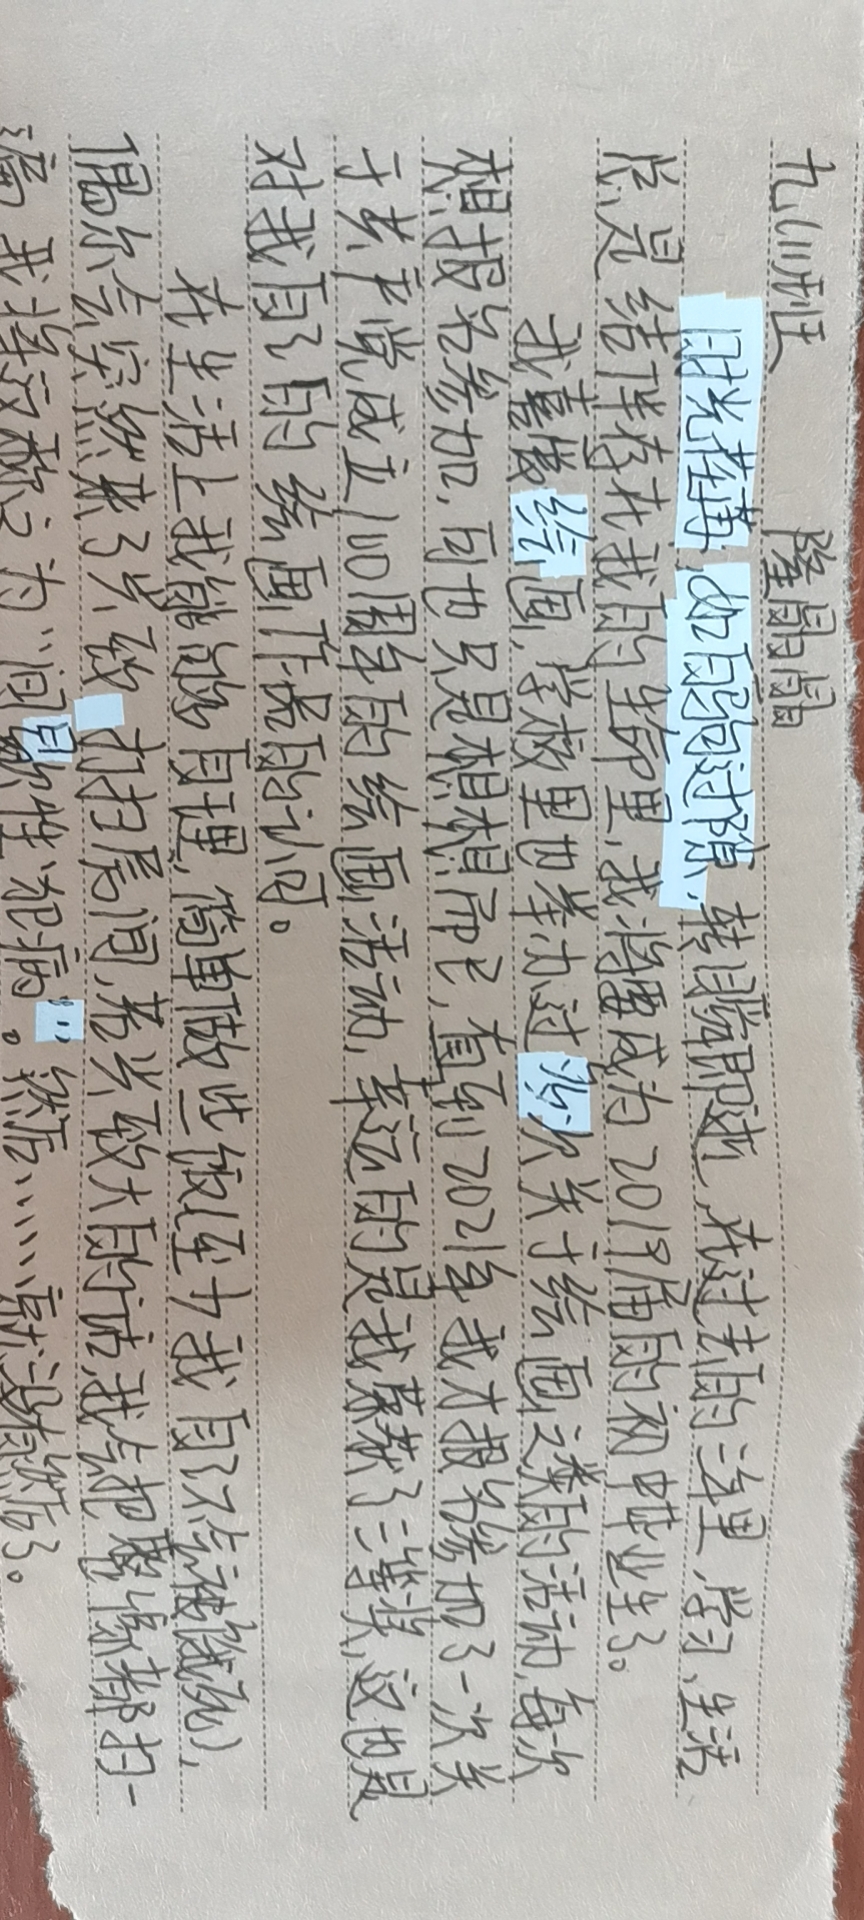 九(1)班 隆晶晶
时光荏苒,如白驹过隙,转瞬即逝,在过去的三年里,学习、生活
总是结伴存在我的生命里,我将要成为2019届的初中毕业生了。
我喜欢绘画,学校里也举办过多次关于绘画之类的活动,每次
想报名参加,同也只是想想而已,直到2021年我才报名参加了一次关
于共产党成立100周年的绘画活动,幸运的是我荣获了二等奖,这也是
对我自己的绘画作品的认同。
在生活上我能够自理,简单做些饭(至少我自己不会被饿死),
偶尔会突然来了兴致 打扫房间,若兴致大的话,我会把整家都扫一
遍,我将这称之为“间歇性犯病”。然后……就没有然后了。